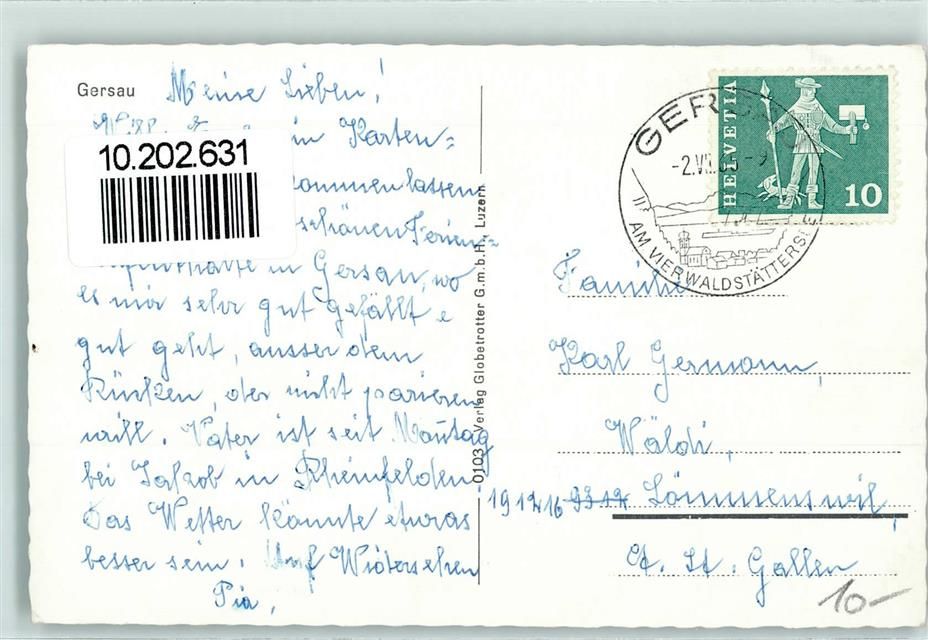 Gersau
Meine Lieben!
in Karten=
10.202.631
kommen lassen
schönen Ferien=
aufenthalte in Gersau, wo
es mir sehr gut gefällt e
gut geht, ausser dem
Rücken, der nicht parieren
will. Vater ist seit Montag
bei Jakob in Rheinfelden.
Das Wetter könnte etwas
besser sein. Auf Wiedersehen
Pia,
0103 Verlag Globetrotter G.m.b.H. Luzern
GERSAU
-2.VII.65-9
AM VIERWALDSTÄTTERSEE
HELVETIA
10
Familie
Karl Germann,
Wäldi,
191216 9312 Lömmenswil,
Kt. St. Gallen
10-